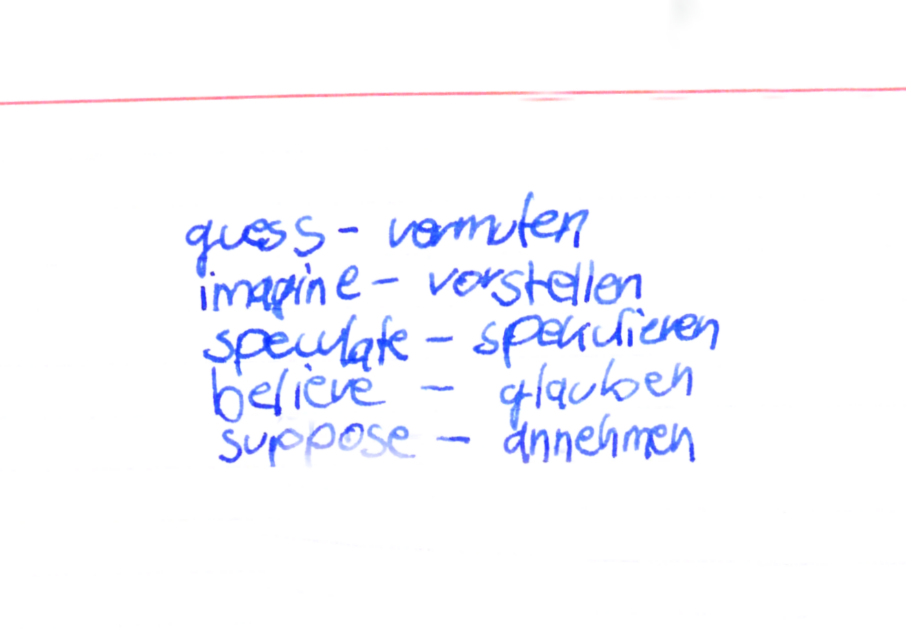 guess - vermuten
imagine - vorstellen
speculate - spekulieren
believe - glauben
suppose - annehmen